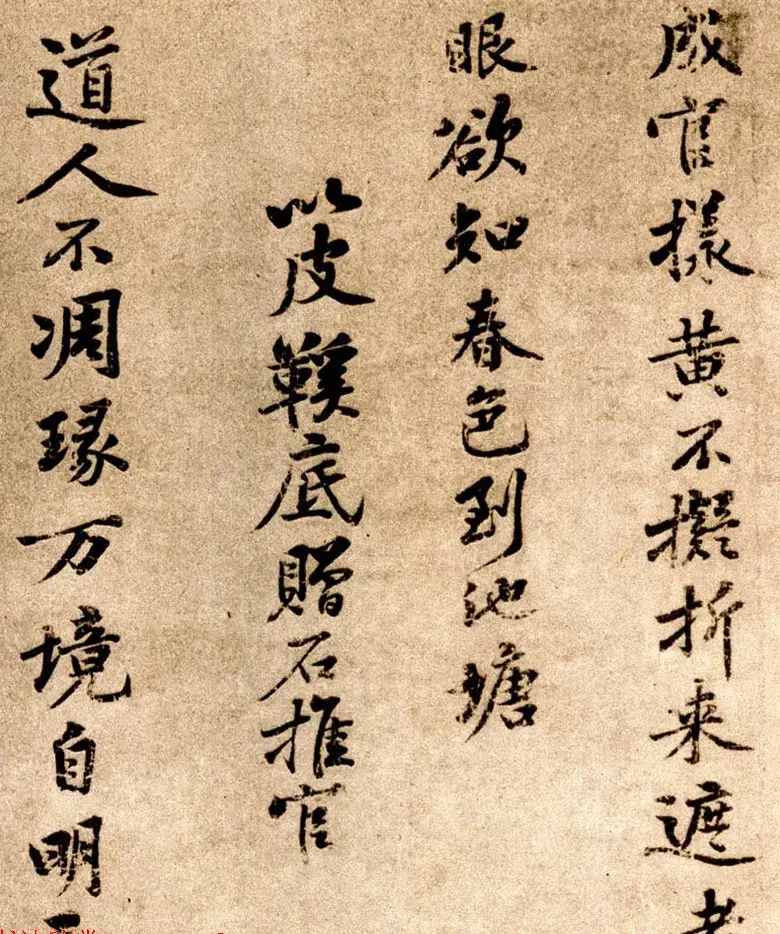 成官樣黄不擬折来遮老
眼欲知春色到池塘
以皮鞵底贈石推官
道人不凋瑑万境自明